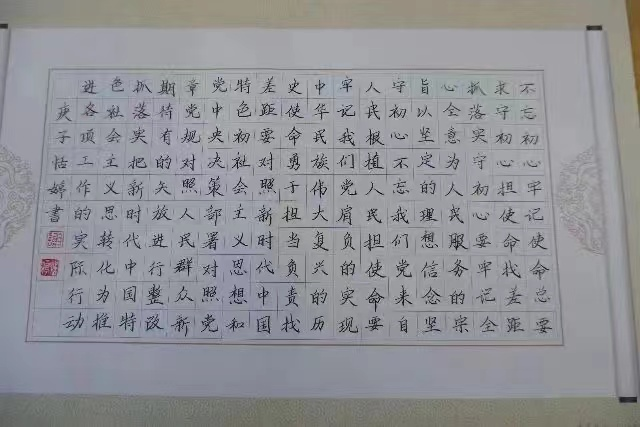 不忘初心牢记使命总要
求守初心担使命找差距
抓落实守初心要牢记全
心全意为人民服务的宗
旨以坚定的理想信念坚
守初心不忘我们党来自
人民根植人民担使命要
牢记我们党肩负的实现
中华民族伟大复兴的历
史使命勇于担当负责找
差距要对照新时代中国
特色初社会主义思想和
党中央决策部署对照党
章党规对照人民群众新
期待有的矢放进行整改
抓落实把新时代中国特
色社会主义思转化为推
进各项工作的实际行动
庚子恬婷書